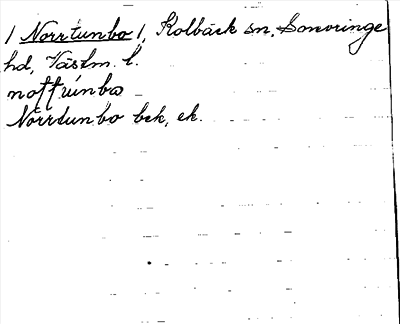 / Norrtunbo /, Kolbäck sn, Snevringe
hd, Västm. l.
nottunbo
Norrtunbo bek, ek.